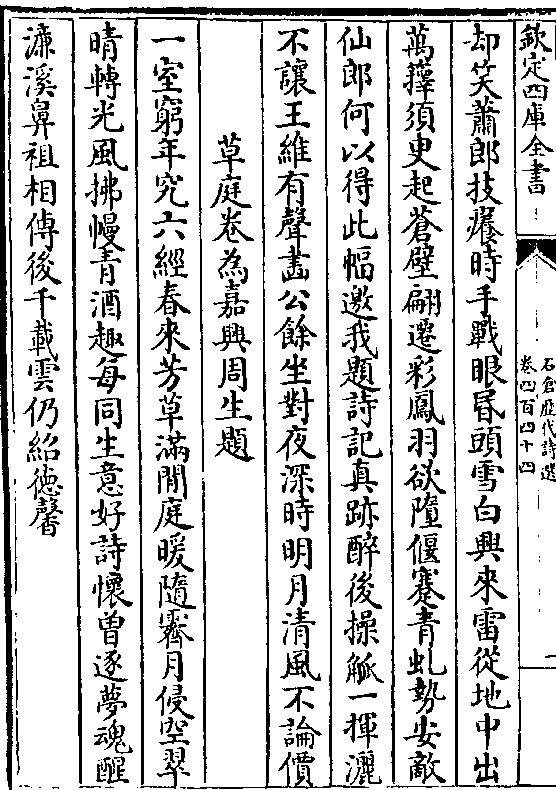 欽定四庫全書
石倉歴代詩選
卷四百四十四
一
却笑蕭郎技癢時手戰眼昏頭雪白興來雷從地中出
萬籜須史起蒼壁翩遷彩鳳羽欲墮偃蹇青虬勢安敵
仙郎何以得此幅邀我題詩記真跡醉後操觚一揮灑
不讓王維有聲畫公餘坐對夜深時明月清風不論價
草庭卷為嘉興周生題
一室窮年究六經春來芳草滿閒庭暖隨霽月侵空翠
晴轉光風拂幔青酒趣每同生意好詩懷曽逐夢魂醒
濂溪鼻祖相傳後千載雲仍紹徳馨